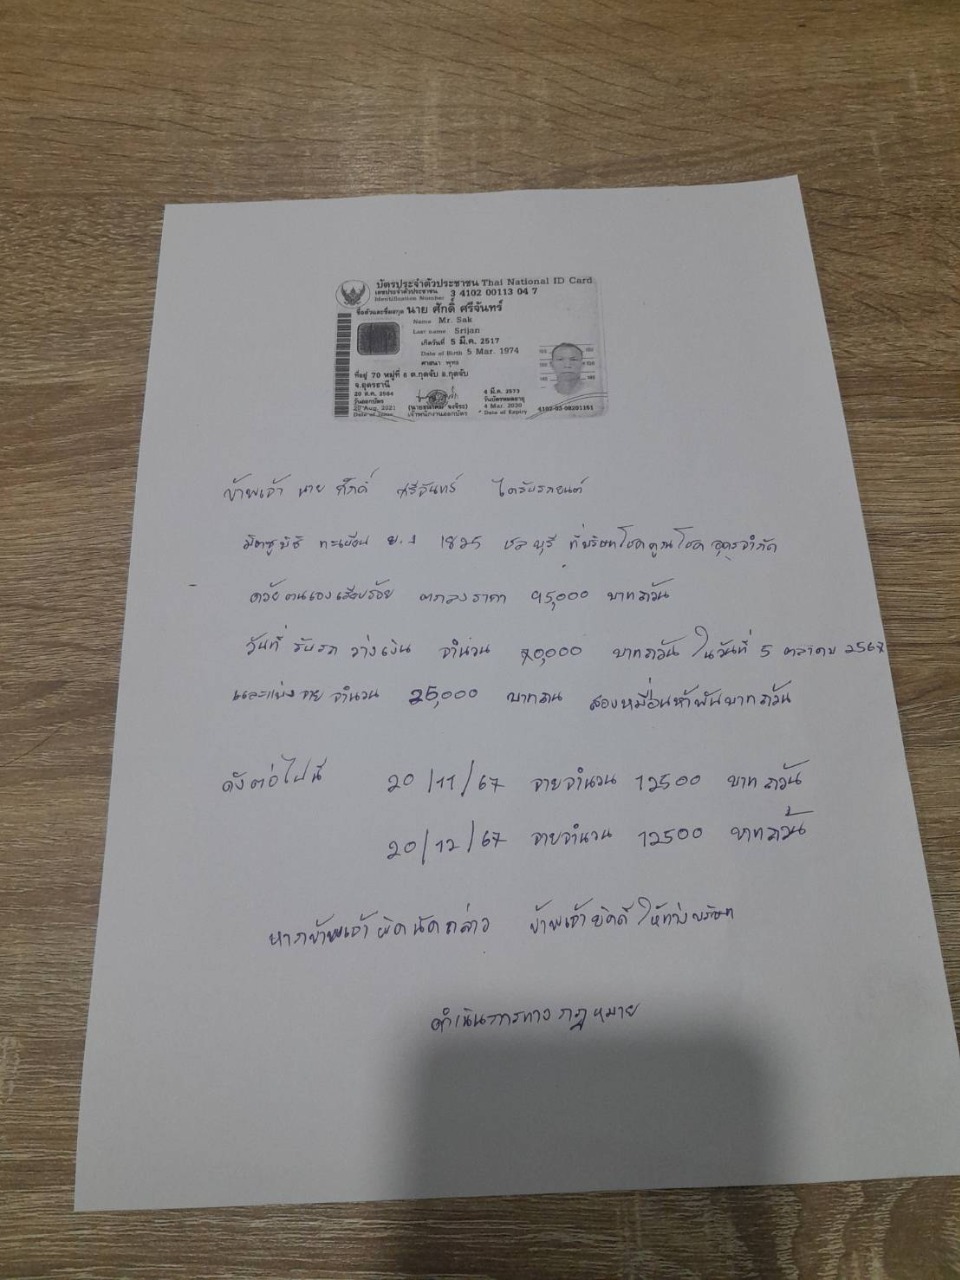 บัตรประจำตัวประชาชน Thai National ID Card
เลขประจำตัวประชาชน 3 4102 00113 04 7
Identification Number
ชื่อตัวและชื่อสกุล นาย ศักดิ์ ศรีจันทร์
Name Mr. Sak
Last name Srijan
เกิดวันที่ 5 มี.ค. 2517
Date of Birth 5 Mar. 1974
ศาสนา พุทธ
ที่อยู่ 70 หมู่ที่ ต.กุดจับ อ.กุดจับ
จ.อุดรธานี
20 ส.ค. 2564
วันออกบัตร
20 Aug. 2021
Date of Issue
เจ้าพนักงานออกบัตร
4 มี.ค. 2573
วันบัตรหมดอายุ
4 Mar. 2030
Date of Expiry
ข้าพเจ้า นาย ศักดิ์ ศรีจันทร์ ได้รับรถยนต์
มิตซูบิชิ ทะเบียน 1825 ชลบุรี ที่บริษัทโชคคูณโชค อุดรจำกัด
ด้วยตนเองเรียบร้อย ตกลงราคา 95,000 บาทถ้วน
วันที่ รับรถ วางเงิน จำนวน 70,000 บาทถ้วน ในวันที่ 5 ตุลาคม 2567
และแบ่งจ่าย จำนวน 25,000 บาทถน สองหมื่นห้าพันบาทถ้วน
ดังต่อไปนี้ 20/11/67 จ่ายจำนวน 12500 บาทถ้วน
20/12/67 จ่ายจำนวน 12500 บาทถ้วน
หากข้าพเจ้าผิดนัดกล่าว ข้าพเจ้ายินดี ให้ทางบริษัท
ดำเนินการทางกฎหมาย